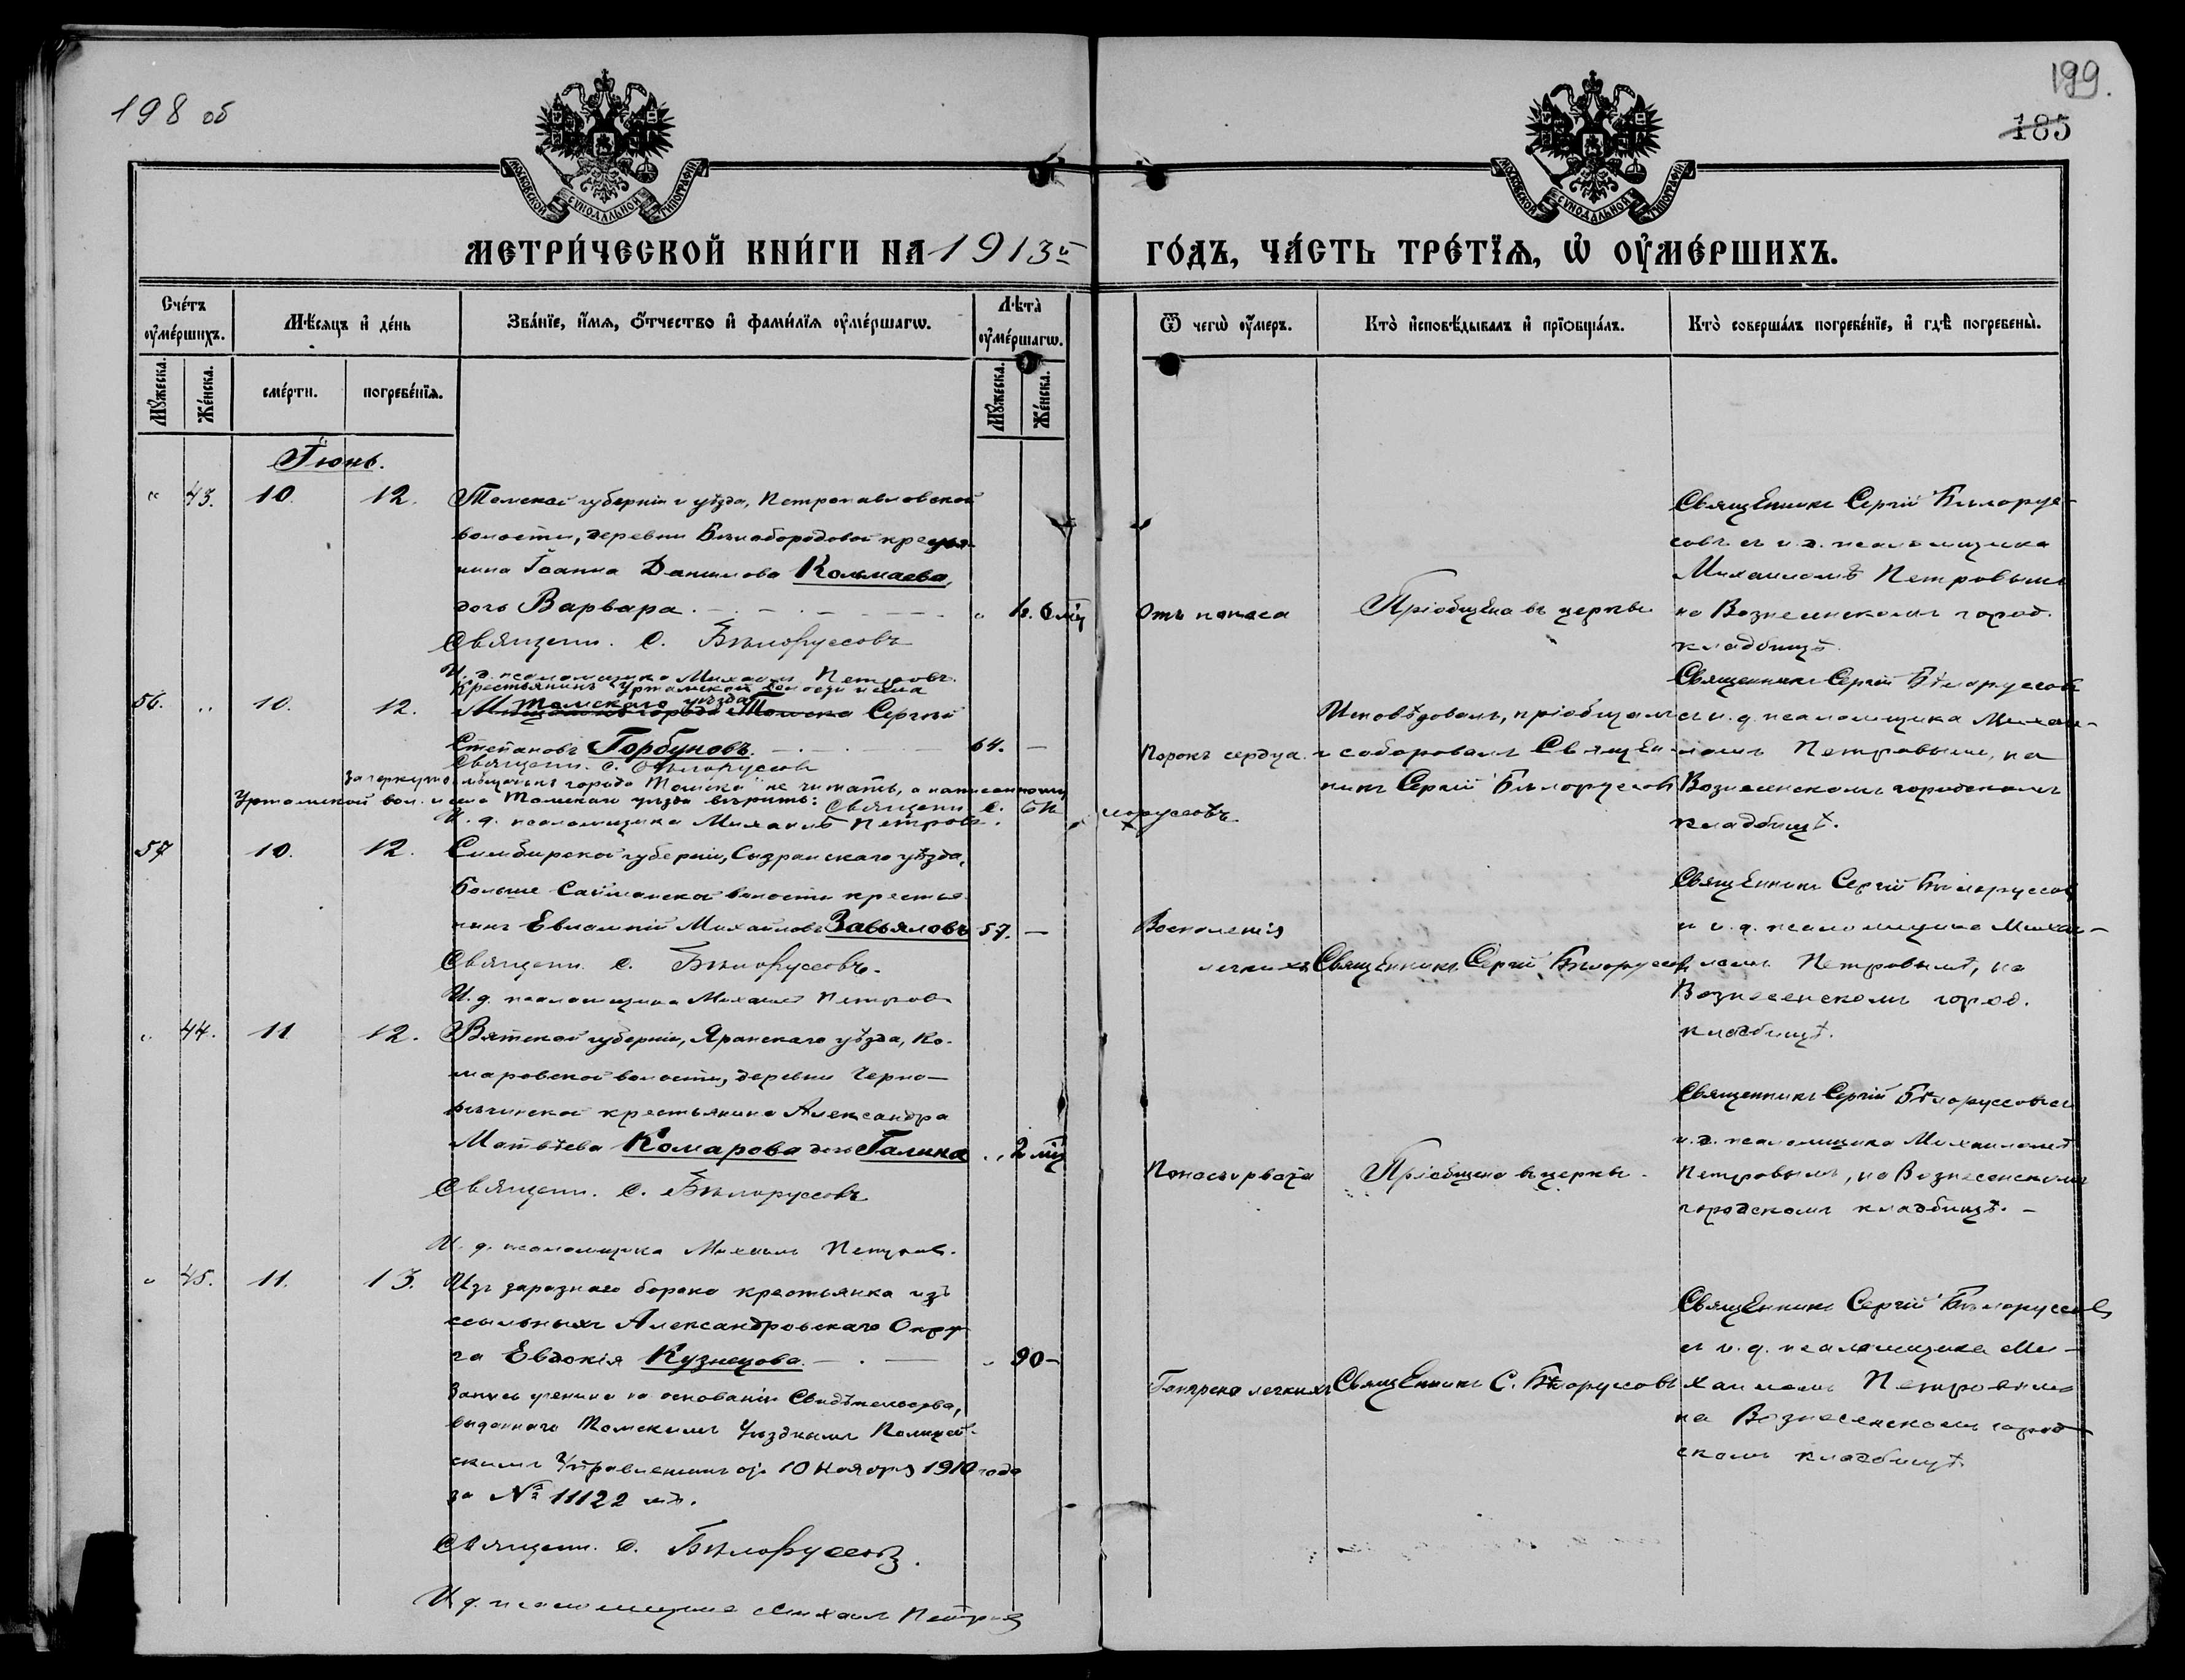 198 об
199.
185
МОСКОВСКОЙ СѴНОДАЛЬНОЙ ТИПОГРАФІИ
МОСКОВСКОЙ СѴНОДАЛЬНОЙ ТИПОГРАФІИ
МЕТРИ́ЧЕСКОЙ КНИ́ГИ НА 1913й ГО́ДЪ, ЧА́СТЬ ТРЕ́ТЇѦ, Ѡ҆ ОУ҆МЕ́РШИХЪ.
Сче́тъ оу҆ме́ршихъ.
Мѣ́сяцъ и҆ де́нь
Зва́нїе, и҆́мя, ѻ҆́тчество и҆ фами́лїя оу҆ме́ршагѡ.
Лѣта̀ оу҆ме́ршагѡ.
Ѿ чегѡ̀ оу҆́меръ.
Кто̀ и҆сповѣ́дывалъ и҆ прїѡбща́лъ.
Кто̀ соверша́лъ погребе́нїе, и҆ гдѣ̀ погребены̀.
Мꙋ́жеска.
Же́нска.
сме́рти.
погребе́нїя.
Мꙋ́жеска.
Же́нска.
Іюнь.
" 43. 10. 12. Томской губерніи и уѣзда, Петропавловской
волости, деревни Бѣлобородовой крестья-
нина Іоанна Данилова Кольмаева,
дочь Варвара.
Священ. С. Бѣлоруссовъ
И. д. псаломщика Михаилъ Петровъ.
Отъ поноса
Пріобщена въ церкви
Священникъ Сергій Бѣлорус-
совъ съ и. д. псаломщика
Михаиломъ Петровымъ
на Вознесенскомъ город.
кладбищѣ.
56. " 10. 12. Крестьянинъ Уртамской волости и села
Томскаго уѣзда
Мѣщанинъ города Томска Сергѣй
Степановъ Горбуновъ. 64. —
Священ. С. Бѣлоруссовъ
Зачеркнуто "мѣщанинъ города Томска" не читать, а написанному
Уртамской вол. и села Томскаго уѣзда вѣрить: Священ. С. Бѣ
лоруссовъ
И. д. псаломщика Михаилъ Петровъ.
Порокъ сердца.
Исповѣдовалъ, пріобщалъ
и соборовалъ Священ-
никъ Сергій Бѣлоруссовъ
Священникъ Сергій Бѣлоруссовъ
съ и. д. псаломщика Михаи-
ломъ Петровымъ, на
Вознесенскомъ городскомъ
кладбищѣ.
57 10. 12. Симбирской губерніи, Сызранскаго уѣзда,
Больше Сайманской волости крестья-
нинъ Евлампій Михайловъ Завьяловъ 57. —
Священ. С. Бѣлоруссовъ.
И. д. псаломщика Михаилъ Петровъ
Воспаленія
легкихъ
Священникъ Сергій Бѣлоруссовъ
Священникъ Сергій Бѣлоруссовъ
и и. д. псаломщика Михаи-
ломъ Петровымъ, на
Вознесенскомъ город.
кладбищѣ.
" 44. 11 12. Вятской губерніи, Яранскаго уѣзда, Ко-
маровской волости, деревни Черно-
крестьянина Александра
Матвѣева Комарова дочь Галина " 2 мц
Священ. С. Бѣлоруссовъ
И. д. псаломщика Михаилъ Петровъ.
Пріобщена въ церкви.
Священникъ Сергій Бѣлоруссовъ съ
и. д. псаломщика Михаиломъ
Петровымъ, на Вознесенскомъ
городскомъ кладбищѣ. —
" 45. 11. 13. Изъ заразнаго барака крестьянка изъ
ссыльныхъ Александровскаго Окру-
га Евдокія Кузнецова. " 90 —
Запись учинена на основаніи Свидѣтельства,
выданнаго Томскимъ Уѣзднымъ Полицей-
скимъ Управленіемъ отъ 10 Ноября 1910 года
за № 11122 мъ.
Священ. С. Бѣлоруссовъ.
И. д. псаломщика Михаилъ Петровъ
Гангрена легкихъ
Священникъ С. Бѣлоруссовъ
Священникъ Сергій Бѣлоруссовъ
съ и. д. псаломщика Ми-
хаиломъ Петровымъ
на Вознесенскомъ город-
скомъ кладбищѣ.